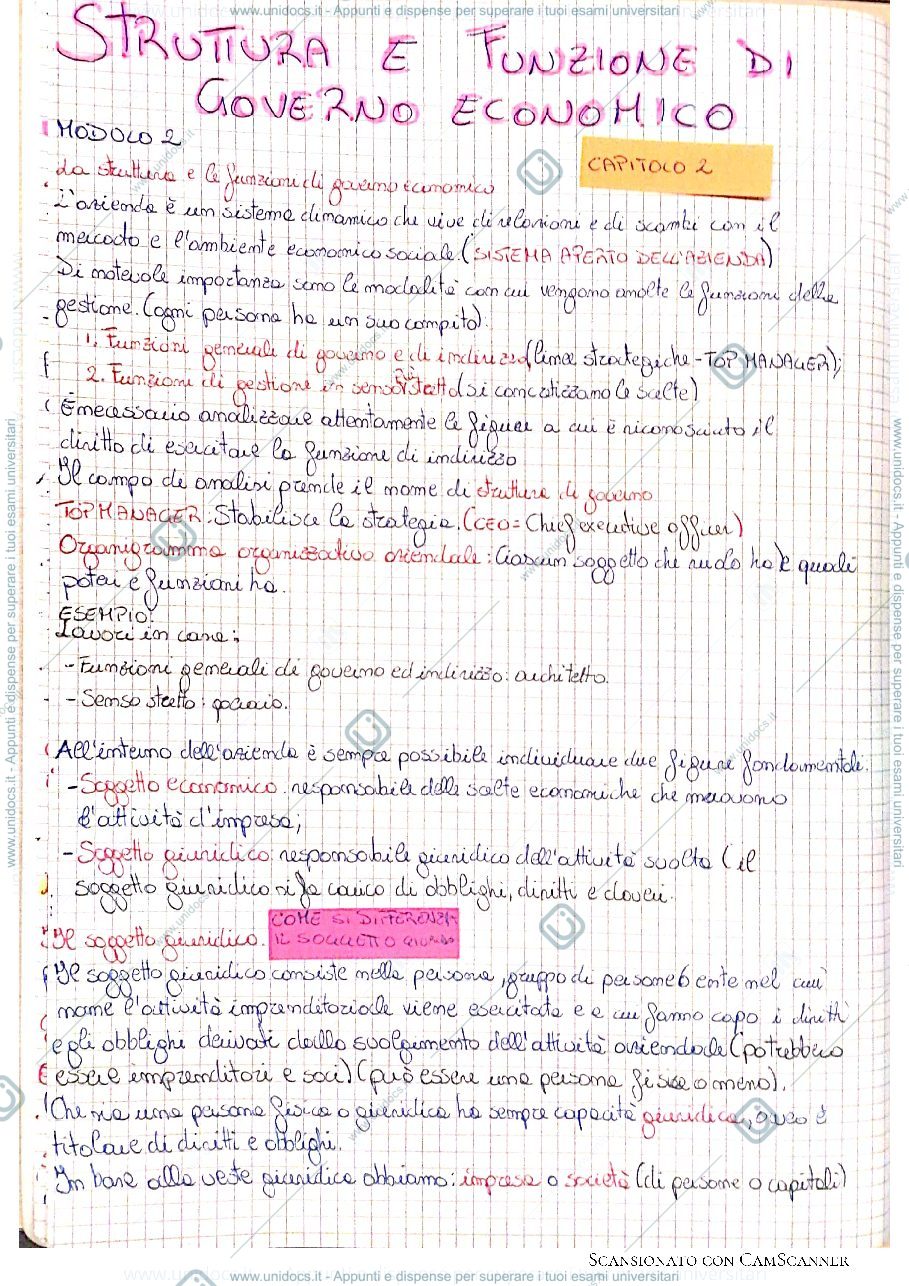 www.unidocs.it - Appunti e dispense per superare i tuoi esami universitari
STRUTTURA E FUNZIONE DI
GOVERNO ECONOMICO
MODULO 2
CAPITOLO 2
La struttura e le funzioni di governo economico
L'azienda è un sistema dinamico che vive di relazioni e di scambi con il
mercato e l'ambiente economico sociale. (SISTEMA APERTO DELL'AZIENDA)
Di notevole importanza sono le modalità con cui vengono svolte le funzioni della
gestione. (ogni persona ha un suo compito).
1. Funzioni generali di governo e di indirizzo (linee strategiche - TOP MANAGER);
2. Funzione di gestione in senso stretto (si concretizzano le scelte)
È necessario analizzare attentamente le figure a cui è riconosciuto il
diritto di esercitare la funzione di indirizzo
Il campo di analisi prende il nome di struttura di governo
TOP MANAGER: Stabilisce la strategia. (CEO = Chief executive officer)
Organigramma organizzativo aziendale: Ciascun soggetto che ruolo ha e quali
poteri e funzioni ha.
ESEMPIO:
Lavori in casa;
- Funzioni generali di governo ed indirizzo: architetto.
- Senso stretto: operaio.
All'interno dell'azienda è sempre possibile individuare due figure fondamentali.
- Soggetto economico: responsabile delle scelte economiche che muovono
l'attività d'impresa;
- Soggetto giuridico: responsabile giuridico dell'attività svolta (il
soggetto giuridico si fa carico di obblighi, diritti e doveri.
Il soggetto giuridico.
COME SI DIFFERENZIA
IL SOGGETTO GIURIDICO
Il soggetto giuridico consiste nella persona, gruppo di persone o ente nel cui
nome l'attività imprenditoriale viene esercitata e a cui fanno capo i diritti
e gli obblighi derivati dallo svolgimento dell'attività aziendale (potrebbero
essere imprenditori e soci) (può essere una persona fisica o meno).
Che sia una persona fisica o giuridica ha sempre capacità giuridica, ovvero è
titolare di diritti e obblighi.
In base alla veste giuridica abbiamo: impresa o società (di persone o capitali)
SCANSIONATO CON CAMSCANNER
www.unidocs.it - Appunti e dispense per superare i tuoi esami universitari